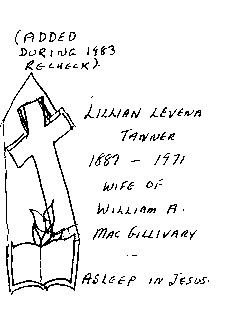 (ADDED
DURING 1983
RECHECK).
LILLIAN LEVENA
TANNER
1887 - 1971
WIFE OF
WILLIAM A.
MAC GILLIVARY
--
ASLEEP IN JESUS.